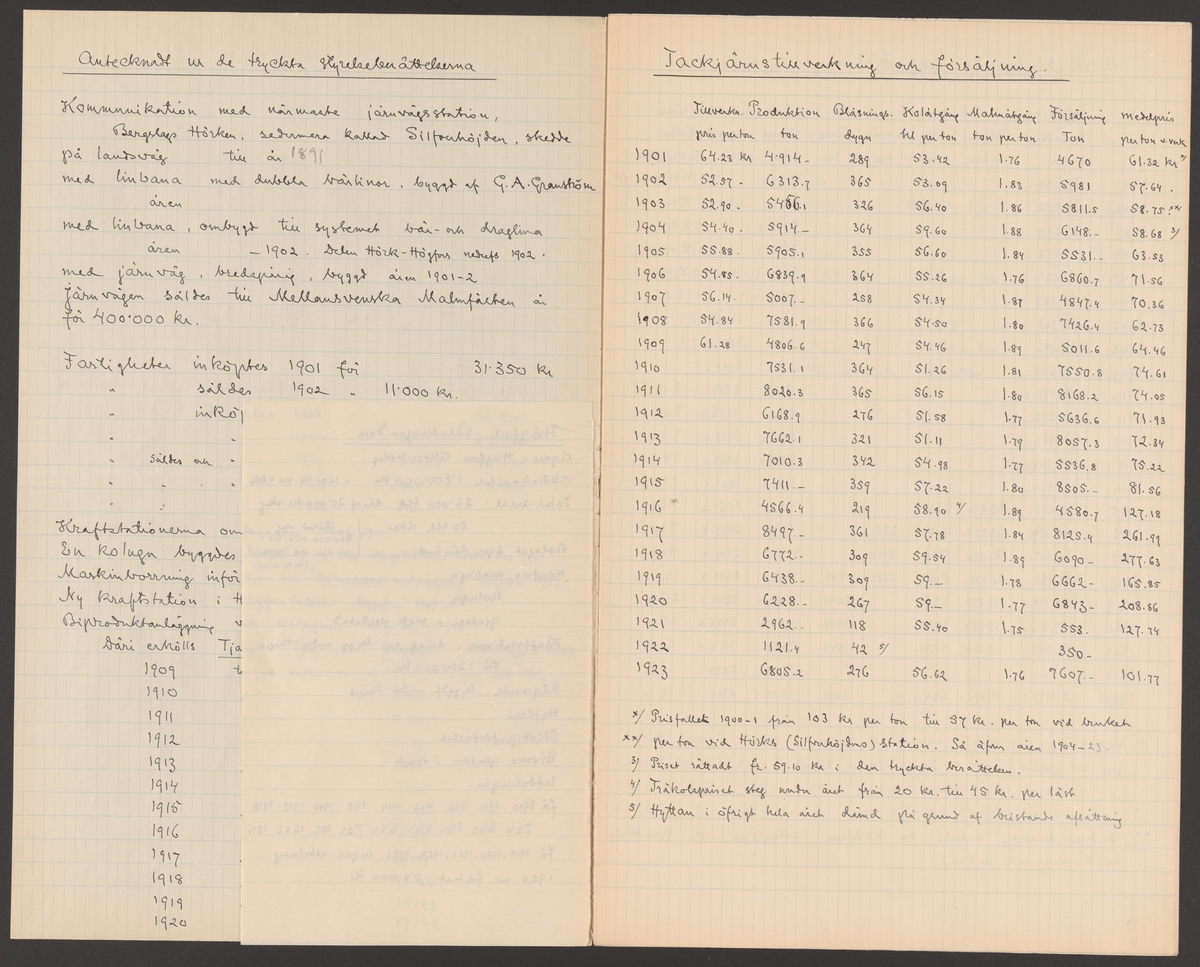 Antecknadt ur de tryckta styrelseberättelserna
Kommunikation med närmaste järnvägsstation,
Bergslags Hörken, sedermera kallad Silfvenhöjden, skedde
på landsväg till år 1891
med linbana med dubbla bärlinor, byggd af G.A. Granström
åren
med linbana, ombygd till systemet bär- och draglina
åren – 1902. Delen Hörk-Högfors nedrefs 1902.
med järnväg, bredspårig, byggd åren 1901-2
Järnvägen såldes till Mellansvenska Malmfälten år
för 400.000 kr.
Fastigheter inköptes 1901 för 31.350 kr
" såldes 1902 " 11.000 kr.
" inköp
" "
" såldes och "
" " "
" "
Kraftstationerna om
En kolugn byggdes
Maskinborrning inför
Ny kraftstation i H
Biproduktanläggning
Däri erhölls Tja
1909 t
1910
1911
1912
1913
1914
1915
1916
1917
1918
1919
1920
Tackjärnstillverkning och försäljning.
Tillverkn. Produktion Blåsnings. Kolåtgång Malmåtgång Försäljning medelpris
pris per ton ton dygn hl per ton ton per ton Ton per ton v. verk
1901 64.23 kr 4.914– 289 53.42 1.76 4670 61.32 kr x/
1902 52.57 . 6313.7 365 53.09 1.83 5981 57.64 .
1903 52.90 . 5466.1 326 56.40 1.86 5811.5 58.75 . xx/
1904 54.40 . 5914– 364 59.60 1.88 6148.– 58.68 3/
1905 55.88 . 5905.1 355 56.60 1.84 5531– 63.53
1906 54.85 . 6839.9 364 55.26 1.76 6860.7 71.56
1907 56.14 . 5007.– 258 54.34 1.87 4847.4 70.36
1908 54.84 7581.9 366 54.50 1.80 7426.4 62.73
1909 61.28 4806.6 247 54.46 1.89 5011.6 64.46
1910 7531.1 364 51.26 1.81 7550.8 74.61
1911 8020.3 365 56.15 1.80 8168.2 74.05
1912 6168.9 276 51.58 1.77 5636.6 71.93
1913 7662.1 321 51.11 1.79 8057.3 72.34
1914 7010.3 342 54.98 1.77 5536.8 75.22
1915 7411.– 359 57.22 1.80 8505.– 81.56
1916 4566.4 219 58.90 4/ 1.89 4580.7 127.18
1917 8497.– 361 57.78 1.84 8125.4 261.99
1918 6772.– 309 59.54 1.89 6090– 277.63
1919 6438.– 309 59.– 1.78 6662– 165.85
1920 6228.– 267 59.– 1.77 6843– 208.86
1921 2962.– 118 55.40 1.75 553. 127.74
1922 1121.4 42 5/ 350–
1923 6805.2 276 56.62 1.76 7607.– 101.77
x/ Prisfallet 1900-1 från 103 kr per ton till 57 kr. per ton vid bruket
xx/ per ton vid Hörks (Silfvenhöjdens) station. Så äfven åren 1904-23.
3/ Priset rättadt fr. 59.10 kr i den tryckta berättelsen.
4/ Träkolspriset steg under året från 20 kr. till 45 kr. per läst
5/ Hyttan i öfrigt hela året dämd på grund af bristande afsättning